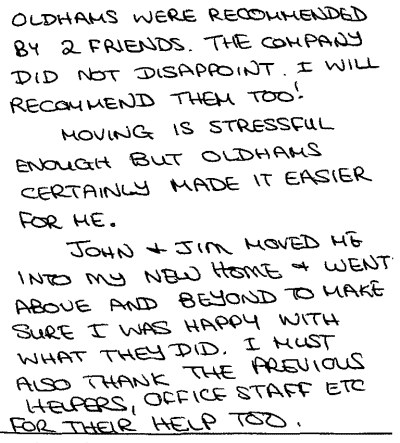 OLDHAMS WERE RECOMMENDED
BY 2 FRIENDS. THE COMPANY
DID NOT DISAPPOINT. I WILL
RECOMMEND THEM TOO!
MOVING IS STRESSFUL
ENOUGH BUT OLDHAMS
CERTAINLY MADE IT EASIER
FOR ME.
JOHN + JIM MOVED ME
INTO MY NEW HOME + WENT
ABOVE AND BEYOND TO MAKE
SURE I WAS HAPPY WITH
WHAT THEY DID. I MUST
ALSO THANK THE PREVIOUS
HELPERS, OFFICE STAFF ETC
FOR THEIR HELP TOO.